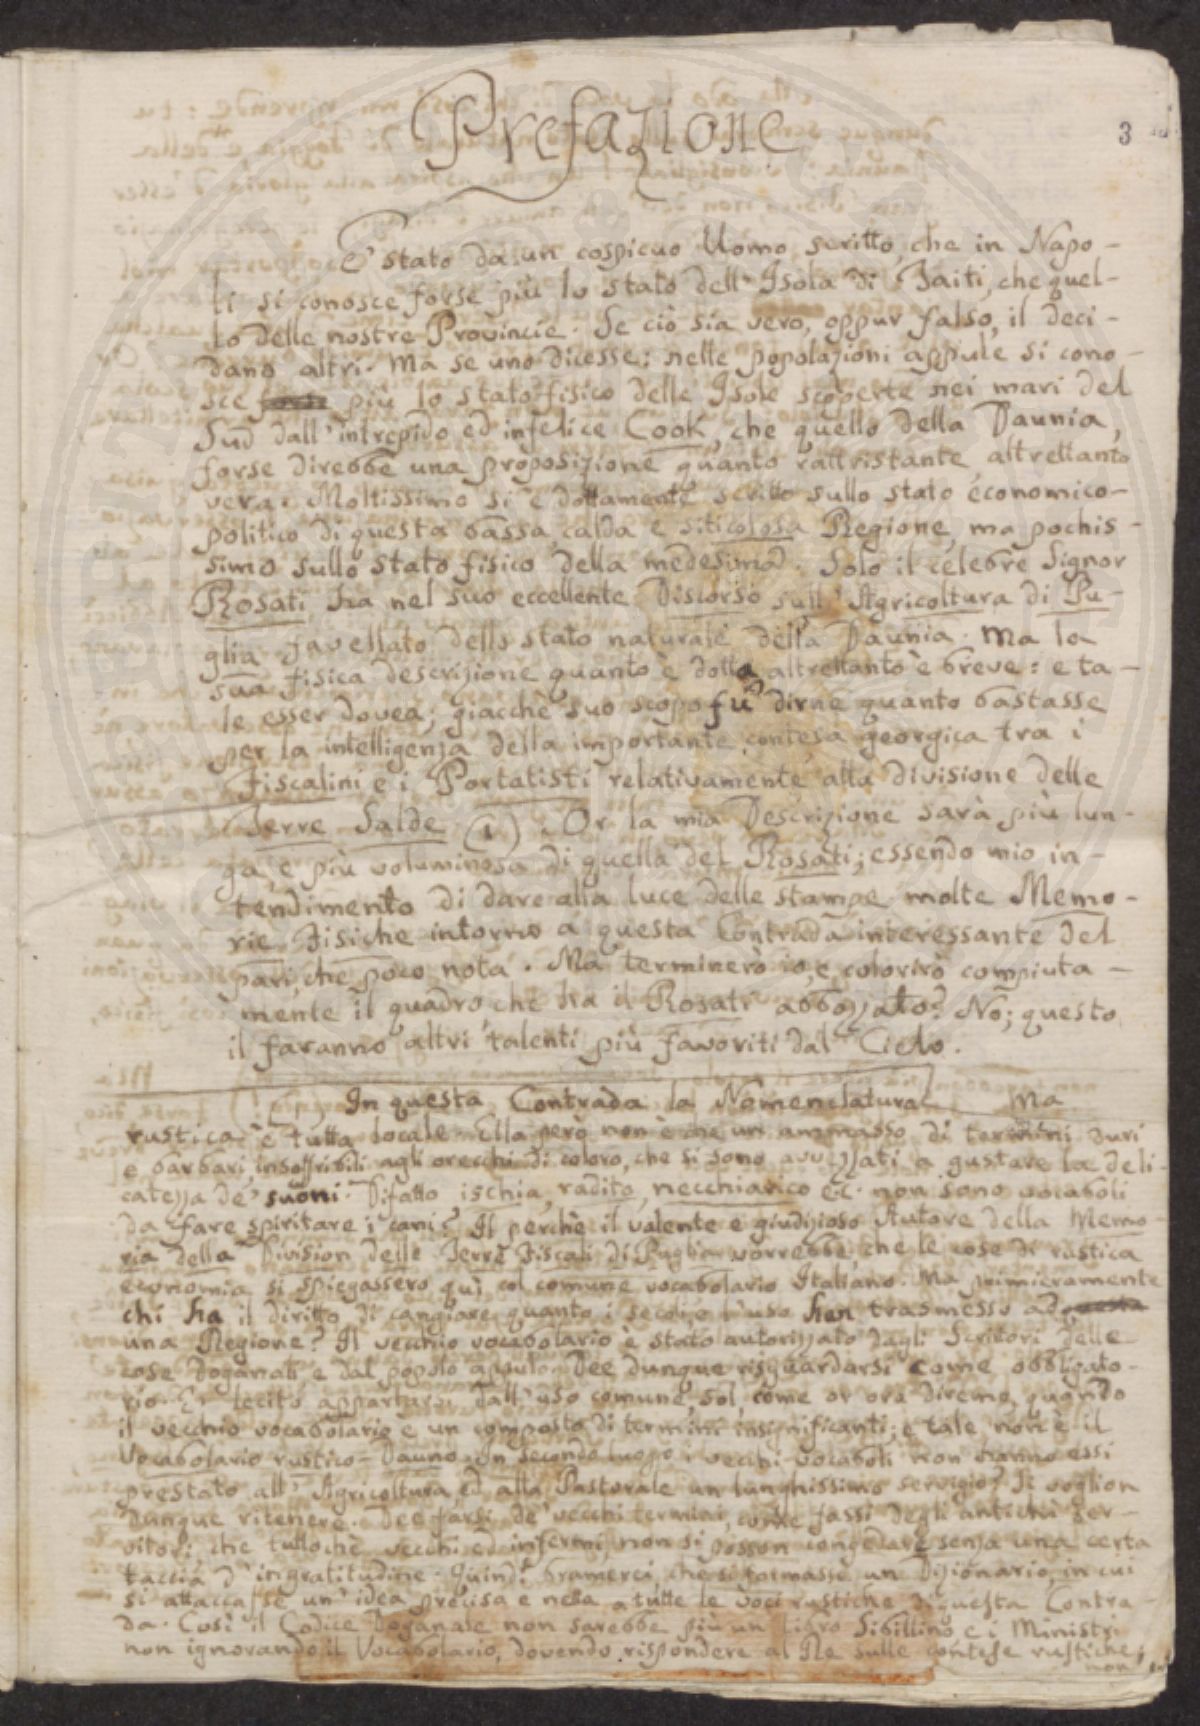 Prefazione
3
E' stato da un cospicuo Uomo scritto, che in Napo-
li si conosce forse più lo stato dell'Isola di Taiti, che quel-
lo delle nostre Provincie. Se ciò sia vero, oppur falso, il deci-
dano altri. Ma se uno dicesse: nelle popolazioni appule si cono-
sce forse più lo stato fisico delle Isole scoperte nei mari del
Sud dall'intrepido ed infelice Cook, che quello della Daunia,
forse direbbe una proposizione quanto rattristante altrettanto
vera. Moltissimo si è dottamente scritto sullo stato economico-
politico di questa bassa, calda e siticolosa Regione, ma pochis-
simo sullo stato fisico della medesima. Solo il celebre Signor
Rosati ha nel suo eccellente Discorso sull'Agricoltura di Pu-
glia favellato dello stato naturale della Daunia. Ma la
sua fisica descrizione quanto è dotta altrettanto è breve: e ta-
le esser dovea; giacchè suo scopo fu dirne quanto bastasse
per la intelligenza della importante contesa georgica tra i
Fiscalini e i Portatisti relativamente alla divisione delle
Terre Salde (1). Or la mia Descrizione sarà più lun-
ga, e più voluminosa di quella del Rosati; essendo mio in-
tendimento di dare alla luce delle stampe molte Memo-
rie Fisiche intorno a questa Contrada interessante del
pari, che poco nota. Ma terminerò io, e colorirò compiuta-
mente il quadro che ha il Rosati abbozzato? No; questo
il faranno altri talenti più favoriti dal Cielo.
Ma
In questa Contrada la Nomenclatura
rustica è tutta locale. Ella però non è che un ammasso di termini duri
e barbari, insoffribili agli orecchi di coloro, che si sono avvezzati a gustare la deli-
catezza de' suoni. Difatto ischia, radito, necchiarico &c. non sono vocaboli
da fare spiritare i cani? Il perchè il valente e giudizioso Autore della Memo-
ria della Division delle Terre Fiscali di Puglia vorrebbe, che le cose di rustica
economia si spiegassero quì col comune vocabolario Italiano. Ma primieramente
chi ha il diritto di cangiare quanto i secoli e l'uso han trasmesso ad questa
una Regione? Il vecchio vocabolario è stato autorizzato dagli Scrittori delle
cose Doganali e dal popolo appulo. Dee dunque risguardarsi come obbligato-
rio. E' lecito appartarsi dall'uso comune, sol, come or ora diremo, quando
il vecchio vocabolario è un composto di termini insignificanti; e tale non è il
Vocabolario rustico-Dauno. In secondo luogo i vecchi vocaboli non hanno essi
prestato all'Agricoltura, ed alla Pastorale un lunghissimo servigio? Si voglion
dunque ritenere. Dee farsi de' vecchi termini, come fassi degli antichi ser-
vitori, che tuttochè vecchi ed infermi, non si posson congedare senza una certa
taccia d'ingratitudine. Quindi bramerei, che si formasse un Dizionario, in cui
si attaccasse un'idea precisa e netta a tutte le voci rustiche di questa Contra-
da. Così il Codice Doganale non sarebbe più un Libro Sibillino e i Ministri
non ignorando il Vocabolario, dovendo rispondere al Re sulle contese rustiche,
non